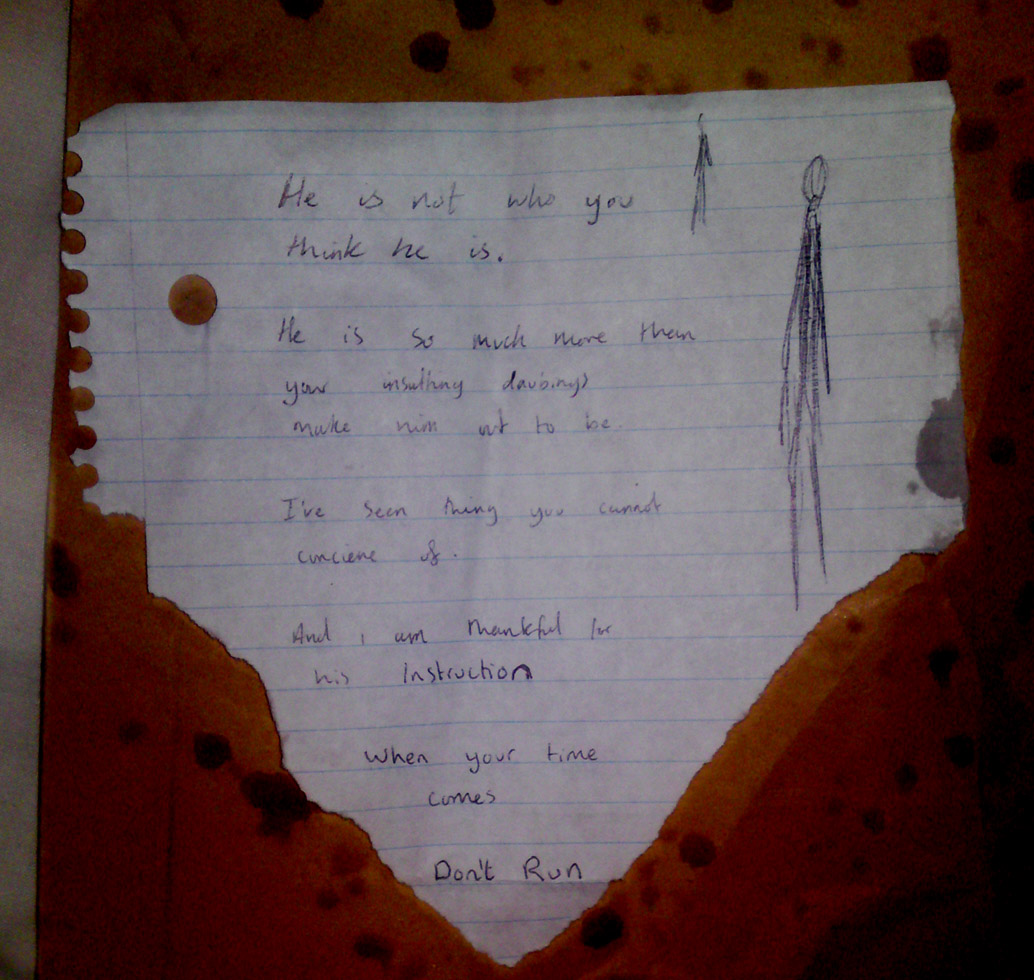 He is not who you
think he is.
He is so much more than
your insulting daubings
make him out to be.
I've seen thing you cannot
concieve of.
And i am thankful for
his Instruction
When your time
comes
Don't Run